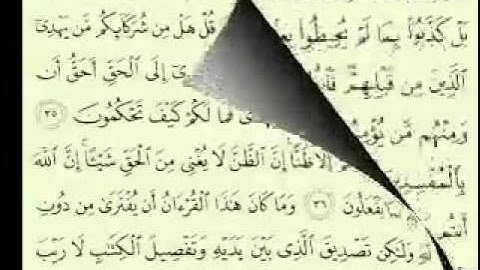 بَلْ كَذَّبُوا۟ بِمَا لَمْ يُحِيطُوا۟ قُلْ هَلْ مِن شُرَكَآئِكُم مَّن يَهْدِىٓ
ٱلَّذِينَ مِن قَبْلِهِمْ إِلَى ٱلْحَقِّ أَحَقُّ أَن
وَمِنْهُم مَّن فَمَا لَكُمْ كَيْفَ تَحْكُمُونَ ٣٥
إِلَّا ظَنًّا إِنَّ ٱلظَّنَّ لَا يُغْنِى مِنَ ٱلْحَقِّ شَيْـًٔا إِنَّ ٱللَّهَ
يَفْعَلُونَ ٣٦ وَمَا كَانَ هَٰذَا ٱلْقُرْءَانُ أَن يُفْتَرَىٰ مِن دُونِ
وَلَٰكِن تَصْدِيقَ ٱلَّذِى بَيْنَ يَدَيْهِ وَتَفْصِيلَ ٱلْكِتَٰبِ لَا رَيْبَ